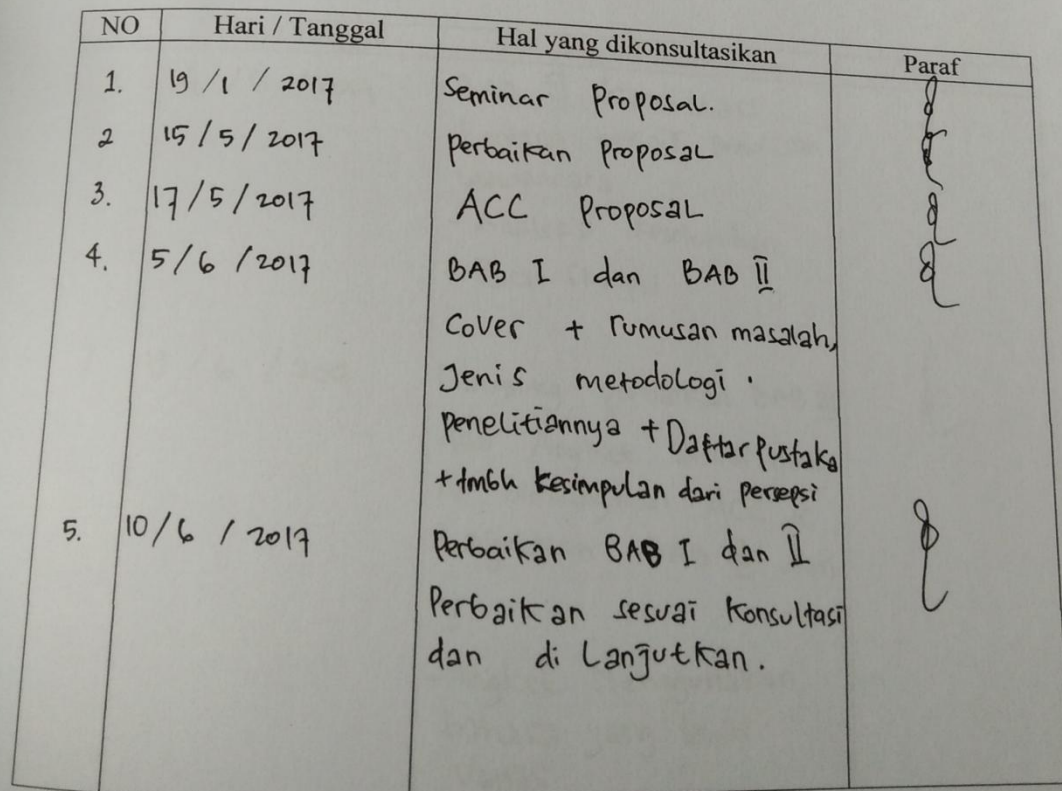 NO Hari / Tanggal Hal yang dikonsultasikan Paraf
1. 19 / 1 / 2017 Seminar Proposal.
2 15 / 5 / 2017 Perbaikan Proposal
3. 17 / 5 / 2017 ACC Proposal
4. 5 / 6 / 2017 BAB I dan BAB II
Cover + rumusan masalah,
Jenis metodologi .
penelitiannya + Daftar Pustaka
+ tmbh kesimpulan dari persepsi
5. 10 / 6 / 2017 Perbaikan BAB I dan II
Perbaikan sesuai Konsultasi
dan di Lanjutkan.